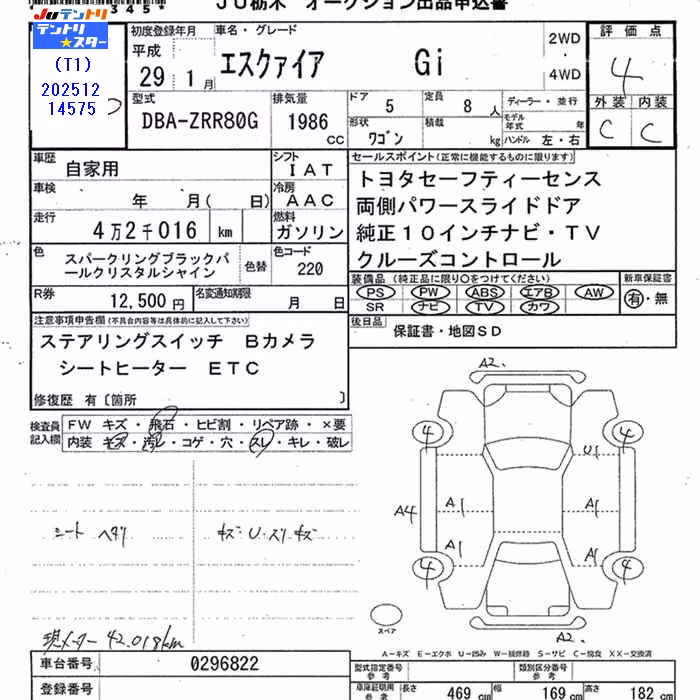 345*
JU栃木 オークション出品申込書
JUテントリ
テントリ★スター
(T1)
202512
14575
初度登録年月
平成
29 1月
車名・グレード
エスクァイア Gi
2WD
・
4WD
評価点
4
外装 内装
C C
型式
DBA-ZRR80G
排気量
1986 cc
ドア 5
定員 8 人
形状 ワゴン
積載 kg
ディーラー・並行
モデル年式 年
ハンドル 左・右
車歴 自家用
シフト IAT
車検 年 月( 日)
冷房 AAC
走行 4万2千016 km
燃料 ガソリン
色 スパークリングブラックパールクリスタルシャイン
色替
色コード 220
R券 12,500円
名変通知期限 月 日
セールスポイント(正常に機能するものに限ります)
トヨタセーフティーセンス
両側パワースライドドア
純正10インチナビ・TV
クルーズコントロール
装備品 (純正品に限り○をつけてください)
PS PW ABS エアB AW
SR ナビ TV カワ
新車保証書
有・無
後日品 保証書・地図SD
注意事項申告欄(不具合内容等は具体的に記入して下さい)
ステアリングスイッチ Bカメラ
シートヒーター ETC
修復歴 有〔箇所 〕
検査員記入欄
FW キズ・飛石・ヒビ割・リペア跡・×要
内装 キズ・汚レ・コゲ・穴・スレ・キレ・破レ
シート ヘタリ
キズ・U・スリキズ
現メーター 42,018km
A2.
4 4
U1
A4 A1 A1
A1 A1
4 4
スペア
A2.
A-キズ E-エクボ U-凹み W-補修跡 S-サビ C-腐食 XX-交換済
車台番号 0296822
登録番号
型式指定番号 参考
類別区分番号 参考
車庫証明用 参考
長さ 469 cm 幅 169 cm 高さ 182 cm